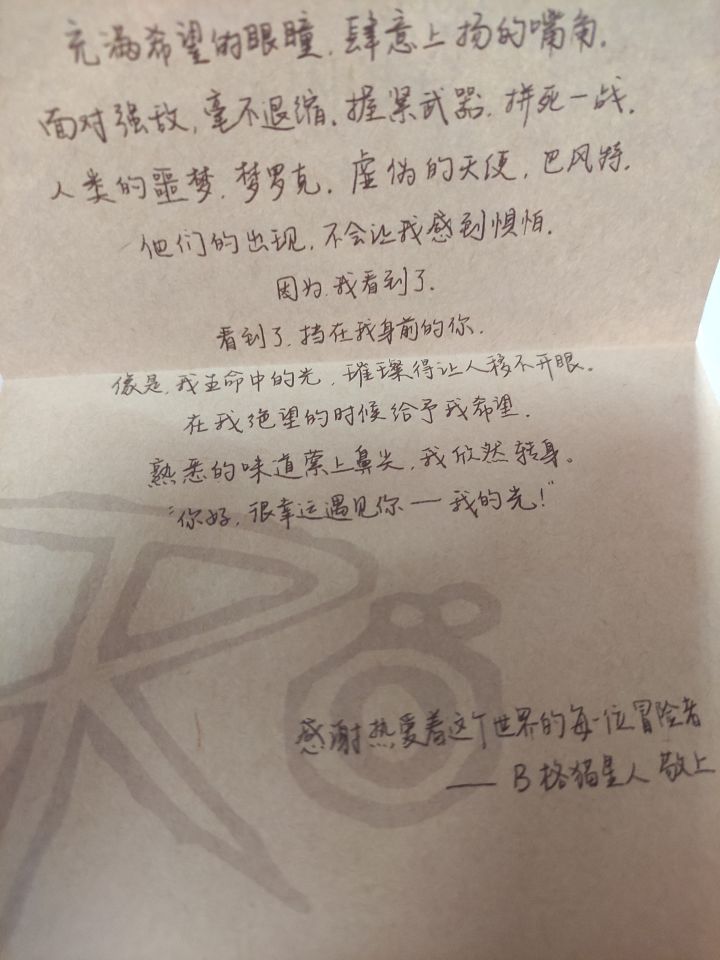 充满希望的眼瞳,肆意上扬的嘴角.
面对强敌,毫不退缩.握紧武器,拼死一战.
人类的噩梦,梦罗克,虚伪的天使,巴风特.
他们的出现,不会让我感到惧怕.
因为,我看到了.
看到了,挡在我身前的你.
像是,我生命中的光,璀璨得让人移不开眼。
在我绝望的时候给予我希望.
熟悉的味道萦上鼻尖,我欣然转身。
“你好,很幸运遇见你——我的光!”
感谢热爱着这个世界的每一位冒险者
—— B格猫星人 敬上